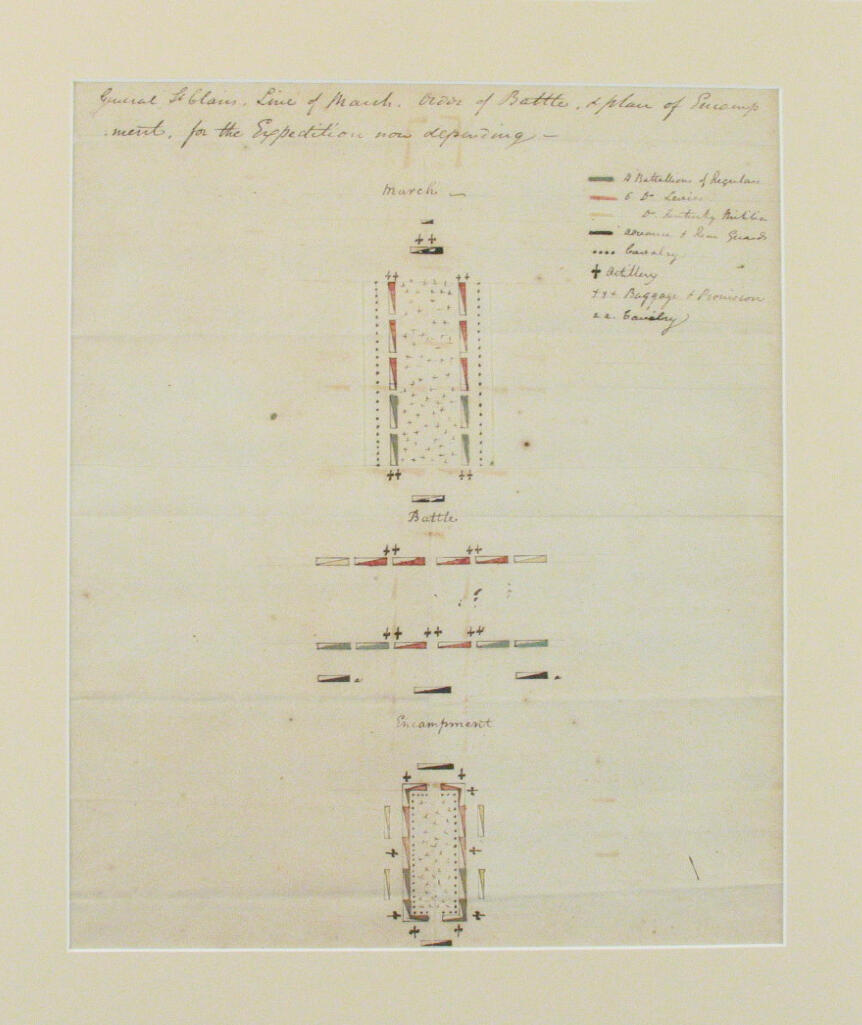 General St Clairs. Line of March. Order of Battle. & plan of Encamp
ment. for the Expedition now depending —
March —
4 Battallions of Regulars
6 Do Levies
Do Kentucky Militia
advance & Rear Guards
Cavalry
Artillery
+++ Baggage & Provision
a a. Cavalry
Battle
a
a
Encampment